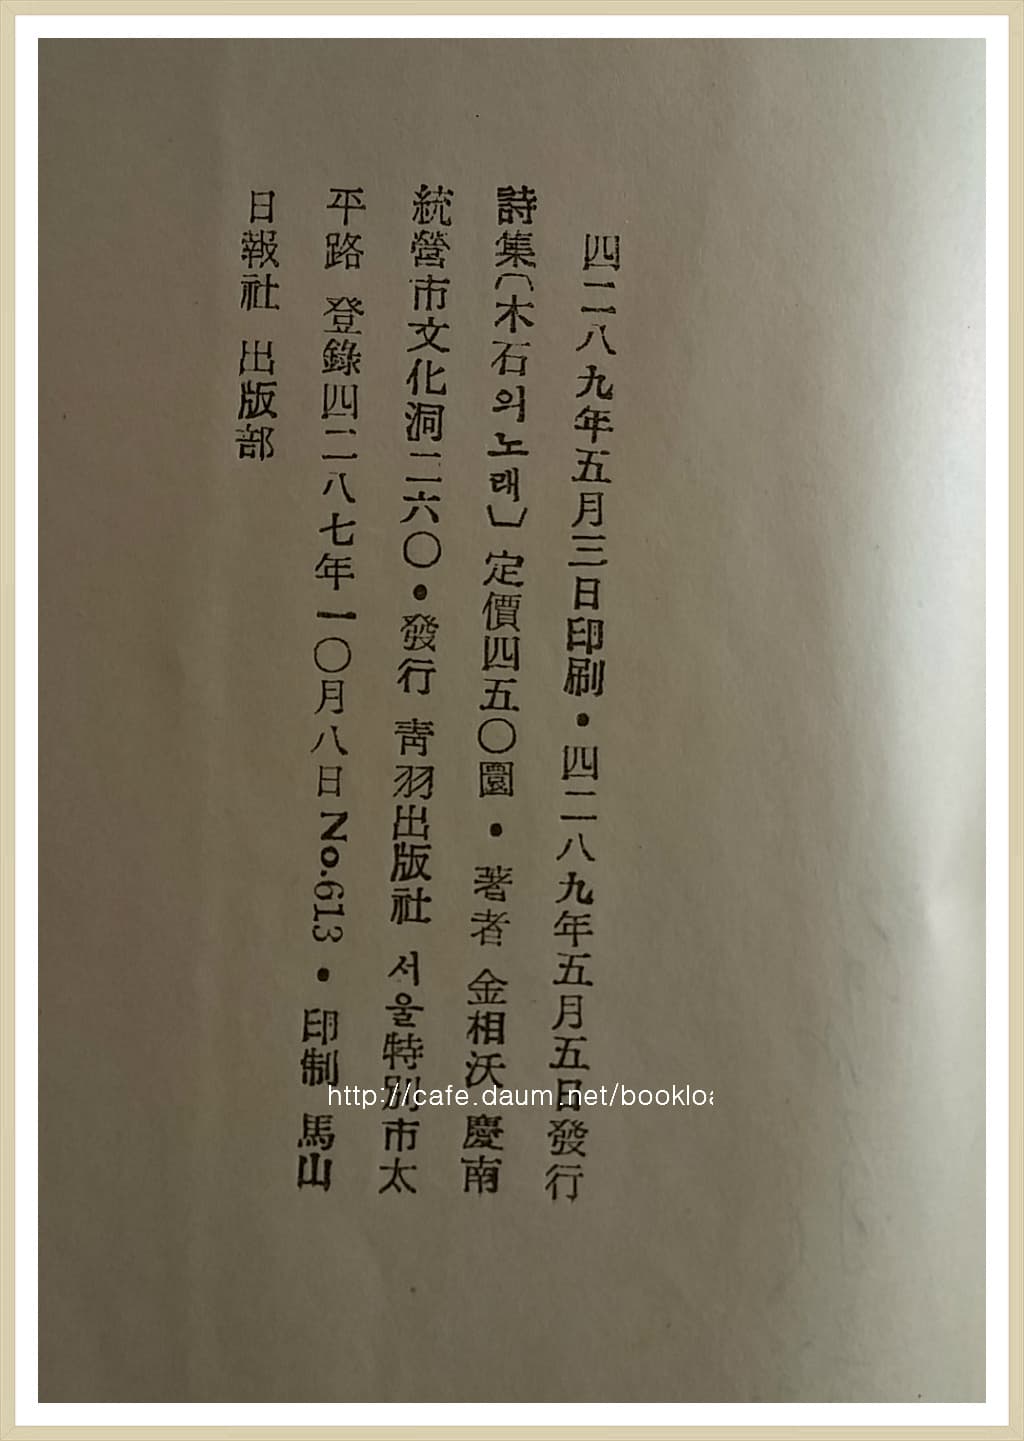 四二八九年五月三日印刷・四二八九年五月五日發行
詩集〔木石의노래〕 定價四五〇圜・著者 金相沃 慶南
統營市文化洞二六〇・發行 靑羽出版社 서울特別市太
平路 登錄四二八七年一〇月八日No.613・印制 馬山
日報社 出版部
http://cafe.daum.net/bookloa